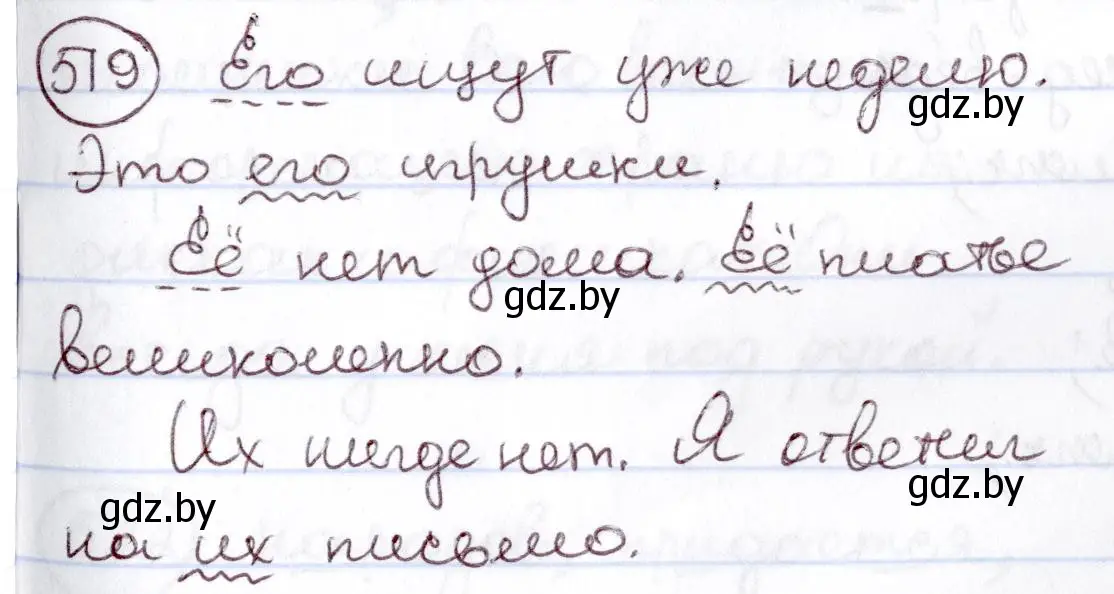 519 Его ищут уже неделю.
gdz.by
Это его игрушки.
Её нет дома. Её платье
gdz.by
великолепно.
Их нигде нет. Я ответил
gdz.by
gdz.by
на их письмо.